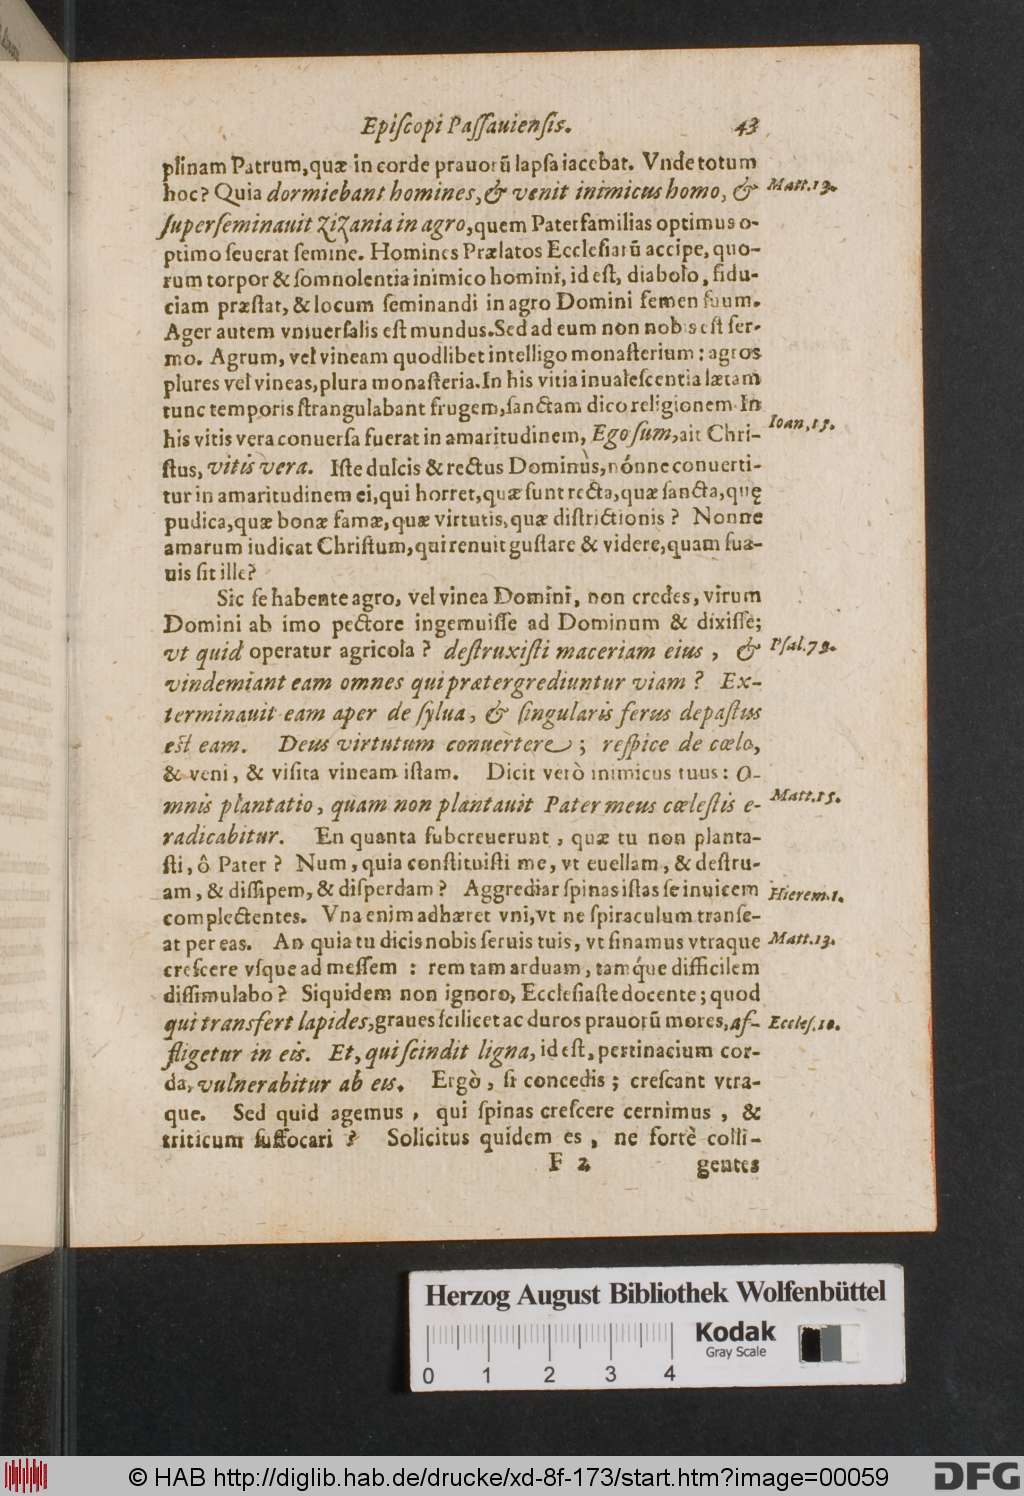 Episcopi Passauiensis. 43
plinam Patrum, quæ in corde prauorũ lapsa iacebat. Vnde totum
hoc? Quia dormiebant homines, & venit inimicus homo, & Matt.13.
superseminauit zizania in agro, quem Paterfamilias optimus o-
ptimo seuerat semine. Homines Prælatos Ecclesiarũ accipe, quo-
rum torpor & somnolentia inimico homini, id est, diabolo, fidu-
ciam præstat, & locum seminandi in agro Domini semen suum.
Ager autem vniuersalis est mundus. Sed ad eum non nobis est ser-
mo. Agrum, vel vineam quodlibet intelligo monasterium: agros
plures vel vineas, plura monasteria. In his vitia inualescentia lætam
tunc temporis strangulabant frugem, sanctam dico religionem. In
his vitis vera conuersa fuerat in amaritudinem, Ego sum, ait Chri- Ioan.15.
stus, vitis vera. Iste dulcis & rectus Dominus, nónne conuerti-
tur in amaritudinem ei, qui horret, quæ sunt recta, quæ sancta, quę
pudica, quæ bonæ famæ, quæ virtutis, quæ districtionis? Nonne
amarum iudicat Christum, qui renuit gustare & videre, quam sua-
uis sit ille?
Sic se habente agro, vel vinea Domini, non credes, virum
Domini ab imo pectore ingemuisse ad Dominum & dixisse;
vt quid operatur agricola? destruxisti maceriam eius, & Psal.79.
vindemiant eam omnes qui prætergrediuntur viam? Ex-
terminauit eam aper de sylua, & singularis ferus depastus
est eam. Deus virtutum conuertere; respice de cœlo,
& veni, & visita vineam istam. Dicit verò inimicus tuus: O-
mnis plantatio, quam non plantauit Pater meus cœlestis e- Matt.15.
radicabitur. En quanta subcreuerunt, quæ tu non planta-
sti, ô Pater? Num, quia constituisti me, vt euellam, & destru-
am, & dissipem, & disperdam? Aggrediar spinas istas se inuicem Hierem.1.
complectentes. Vna enim adhæret vni, vt ne spiraculum transe-
at per eas. An quia tu dicis nobis seruis tuis, vt sinamus vtraque Matt.13.
crescere vsque ad messem: rem tam arduam, tamq́ue difficilem
dissimulabo? Siquidem non ignoro, Ecclesiaste docente; quod
qui transfert lapides, graues scilicet ac duros prauorũ mores, af- Eccles.10.
fligetur in eis. Et, qui scindit ligna, id est, pertinacium cor-
da, vulnerabitur ab eis. Ergò, si concedis; crescant vtra-
que. Sed quid agemus, qui spinas crescere cernimus, &
triticum suffocari? Solicitus quidem es, ne fortè colli-
F 2 gentes
Herzog August Bibliothek Wolfenbüttel
Kodak
Gray Scale
0 1 2 3 4
© HAB http://diglib.hab.de/drucke/xd-8f-173/start.htm?image=00059
DFG